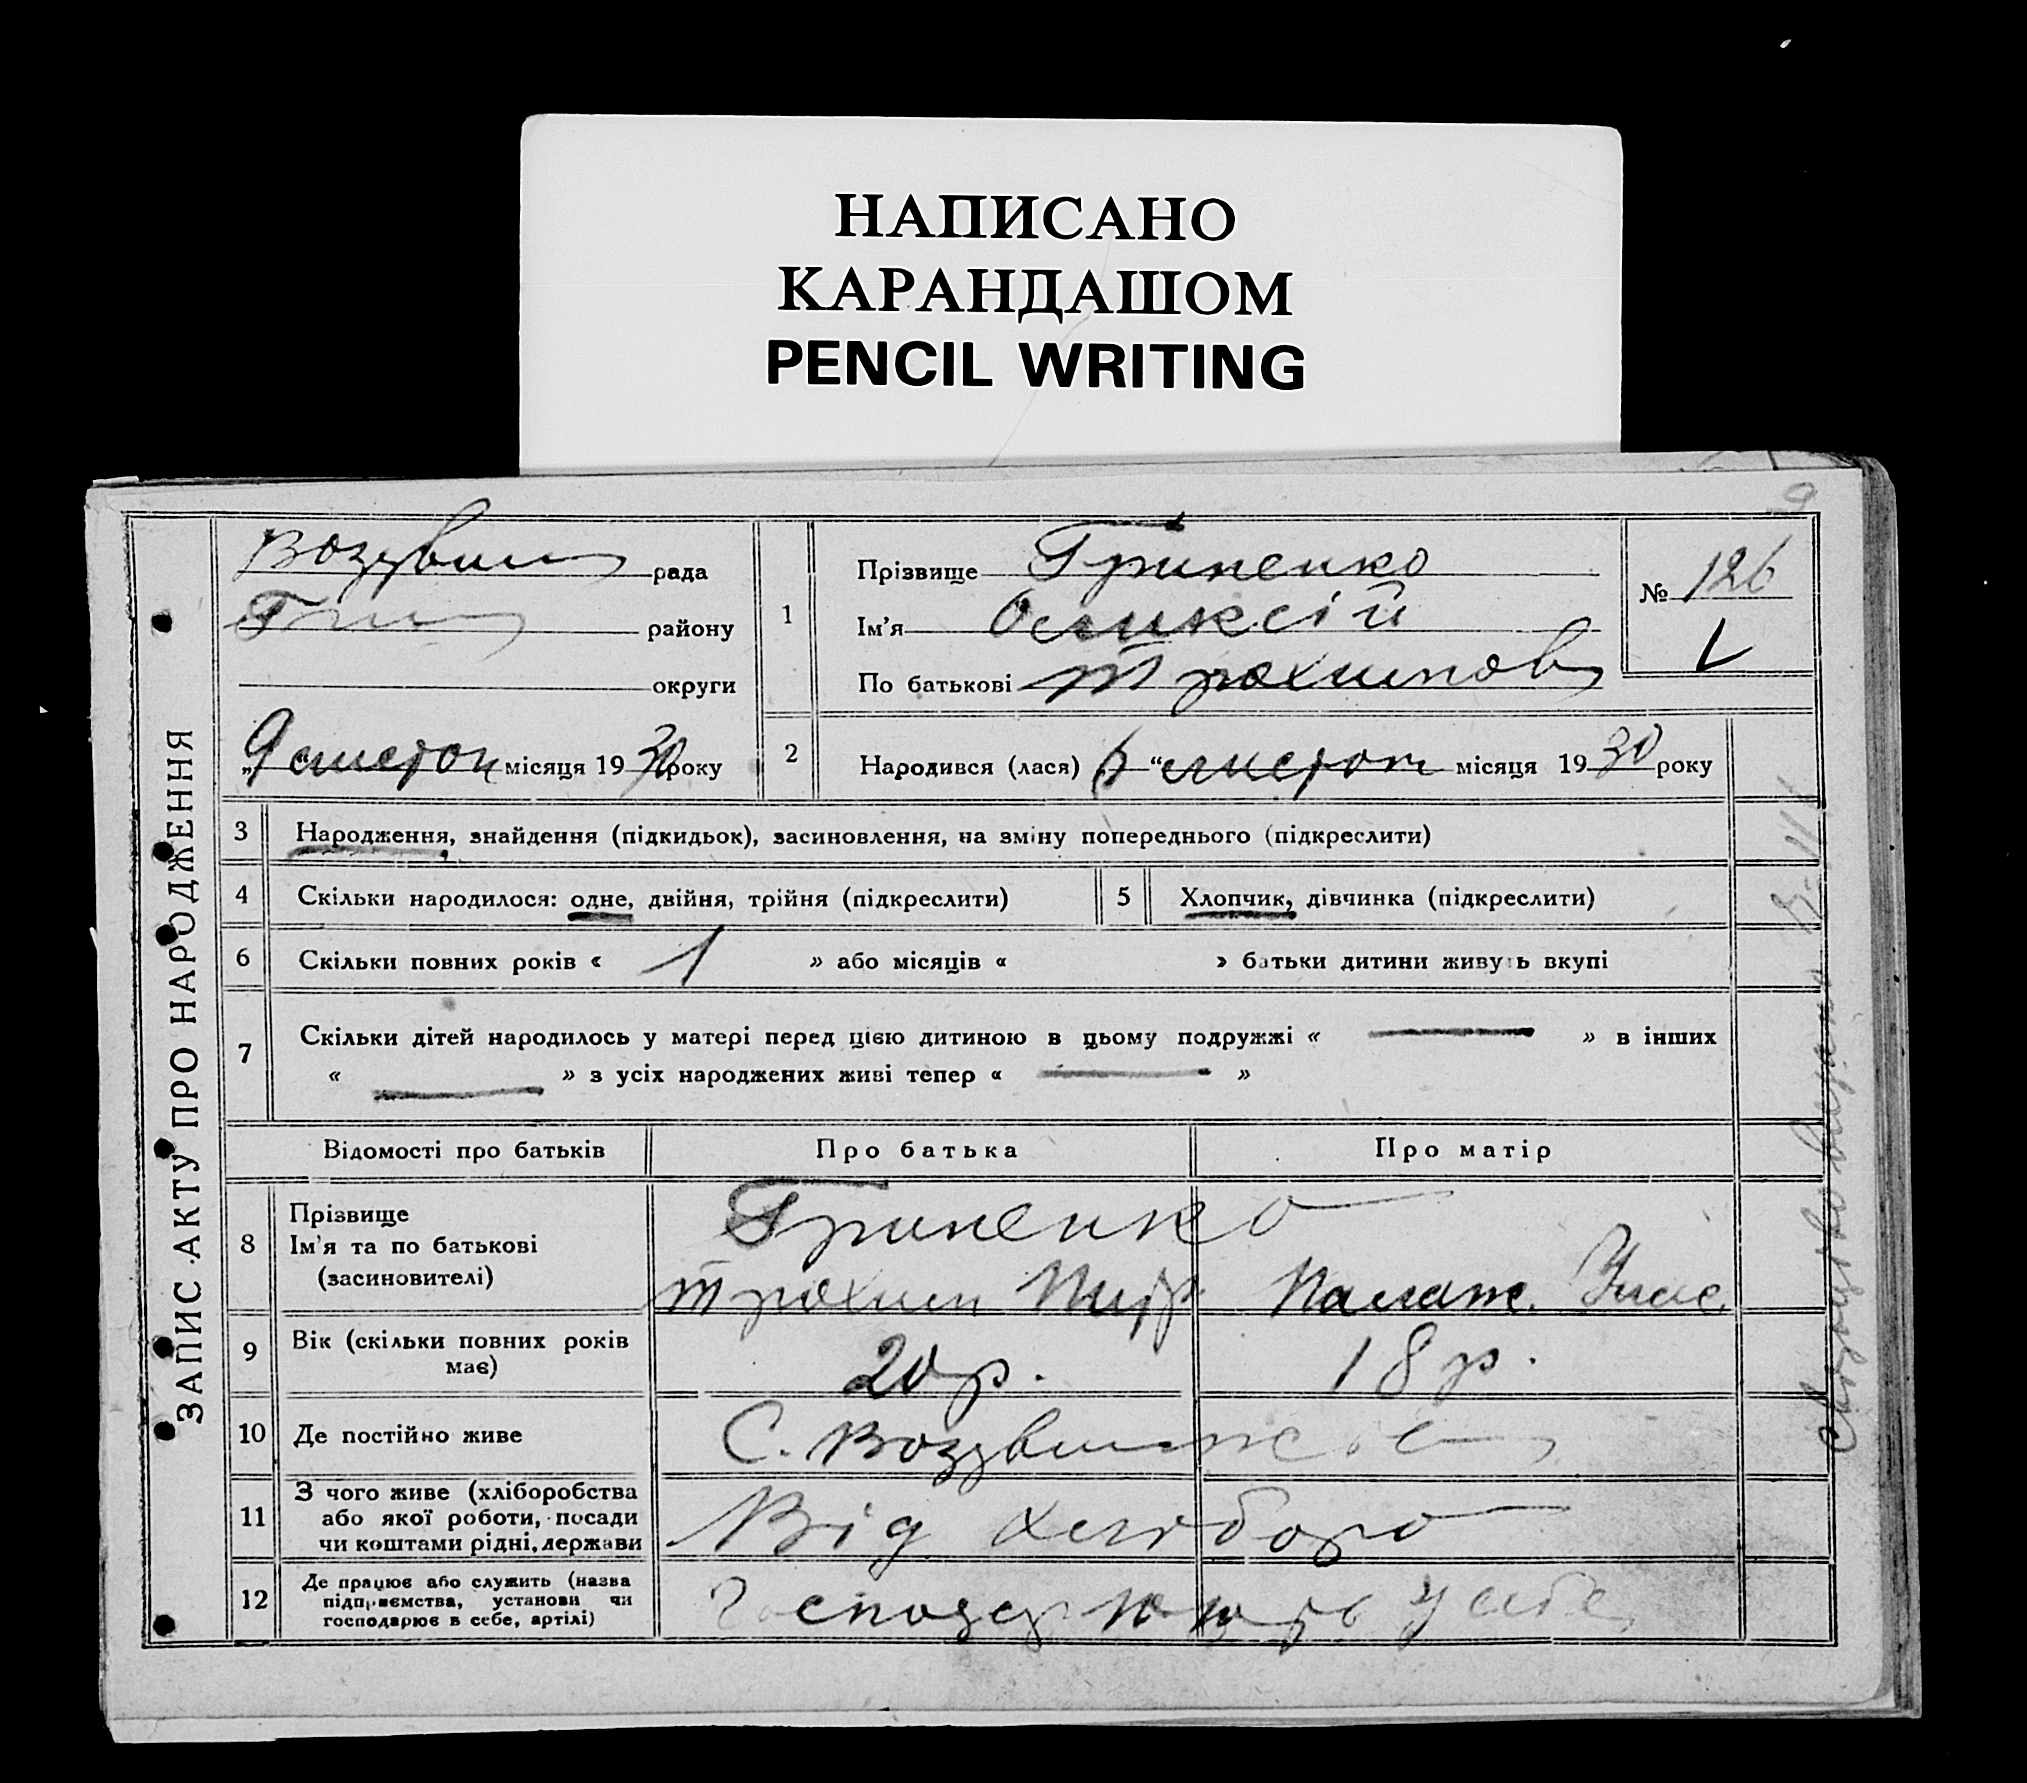 НАПИСАНО
КАРАНДАШОМ
PENCIL WRITING
9
ЗАПИС АКТУ ПРО НАРОДЖЕННЯ
Воздвиж рада
району
округи
9 листоп місяця 1930 року
1
Прізвище Гриненко
Ім'я Оликсій
По батькові Трохимов
№ 126
2
Народився (лася) „6“ листоп місяця 1930 року
3 Народження, знайдення (підкидьок), засиновлення, на зміну попереднього (підкреслити)
4 Скільки народилося: одне, двійня, трійня (підкреслити) 5 Хлопчик, дівчинка (підкреслити)
6 Скільки повних років « 1 » або місяців « » батьки дитини живуть вкупі
7 Скільки дітей народилось у матері перед цією дитиною в цьому подружжі « — » в інших
« — » з усіх народжених живі тепер « — »
Відомості про батьків Про батька Про матір
8 Прізвище
Ім'я та по батькові
(засиновителі)
Гриненко
Трохим Палаж.
9 Вік (скільки повних років
має)
20 р. 18 р.
10 Де постійно живе С. Воздвиж
11 З чого живе (хліборобства
або якої роботи, посади
чи коштами рідні, держави
Від хліборо
12 Де працює або служить (назва
підприємства, установи чи
господарює в себе, артілі)
Господарюють у себе